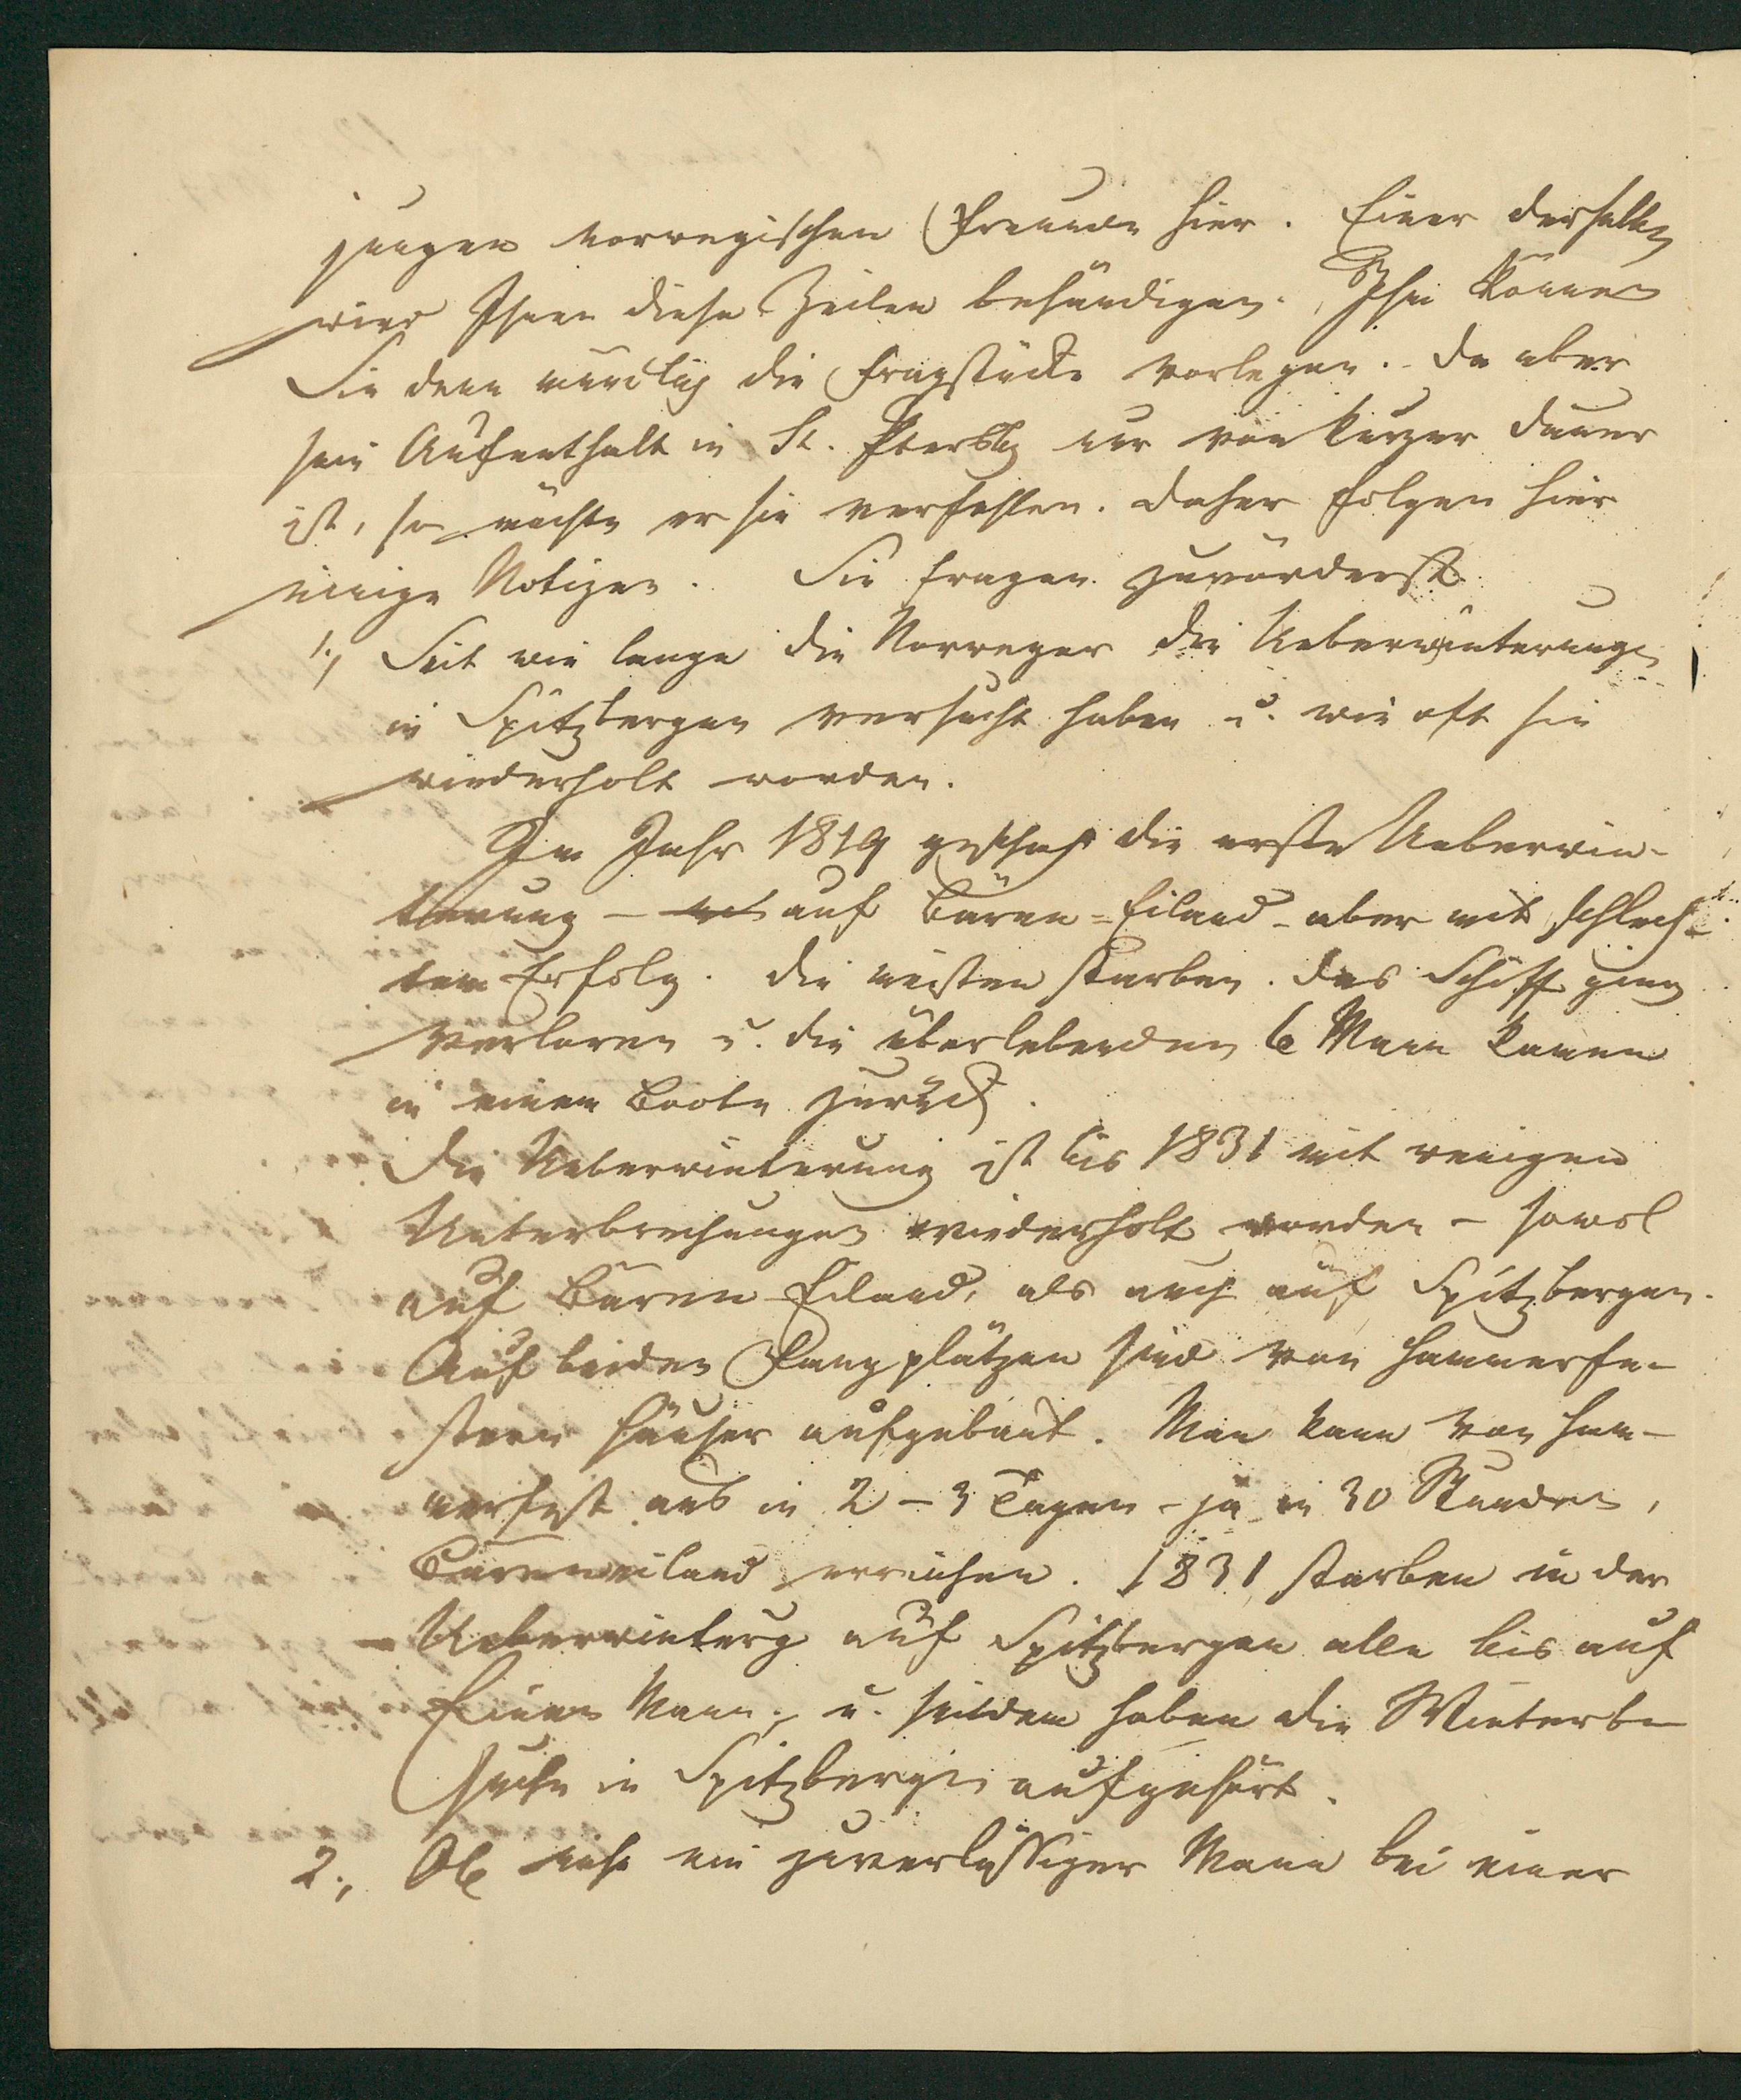 jungen norwegischen Freunde hier. Einer derselben
wird Ihnen diese Zeilen behändigen. Ihm können
Sie denn mündlich die Fragstücke vorlegen. Da aber
sein Aufenthalt in St. Ptersbg nur von kurzer Dauer
ist, so möchte er sie verfehlen. Daher folgen hier
einige Notizen. Sie fragen zuvörderst
1., Seit wie lange die Norweger die Ueberwinterungen
in Spitzbergen versucht haben u. wie oft sie
wiederholt worden.
Im Jahr 1819 geschah die erste Ueberwin-
terung – auf Bären-Eiland – aber mit schlech-
tem Erfolg. Die meisten starben. Das Schiff ging
verloren u. die überlebenden 6 Mann kamen
in einem Boote zurück.
Die Ueberwinterung ist bis 1831 mit wenigen
Unterbrechungen wiederholt worden – sowol
auf Bären-Eiland, als auch auf Spitzbergen.
Auf beiden Fangplätzen sind von Hammerfe-
stern Häuser aufgebaut. Man kann von Ham-
merfest aus in 2–3 Tagen – ja in 30 Stunden,
Bäreneiland erreichen. 1831 starben in der
Ueberwinterg auf Spitzbergen alle bis auf
Einen Mann, u. seitdem haben die Winterbe
suche in Spitzbergen aufgehört.
2., Ob ein zuverlässiger Mann bei einer